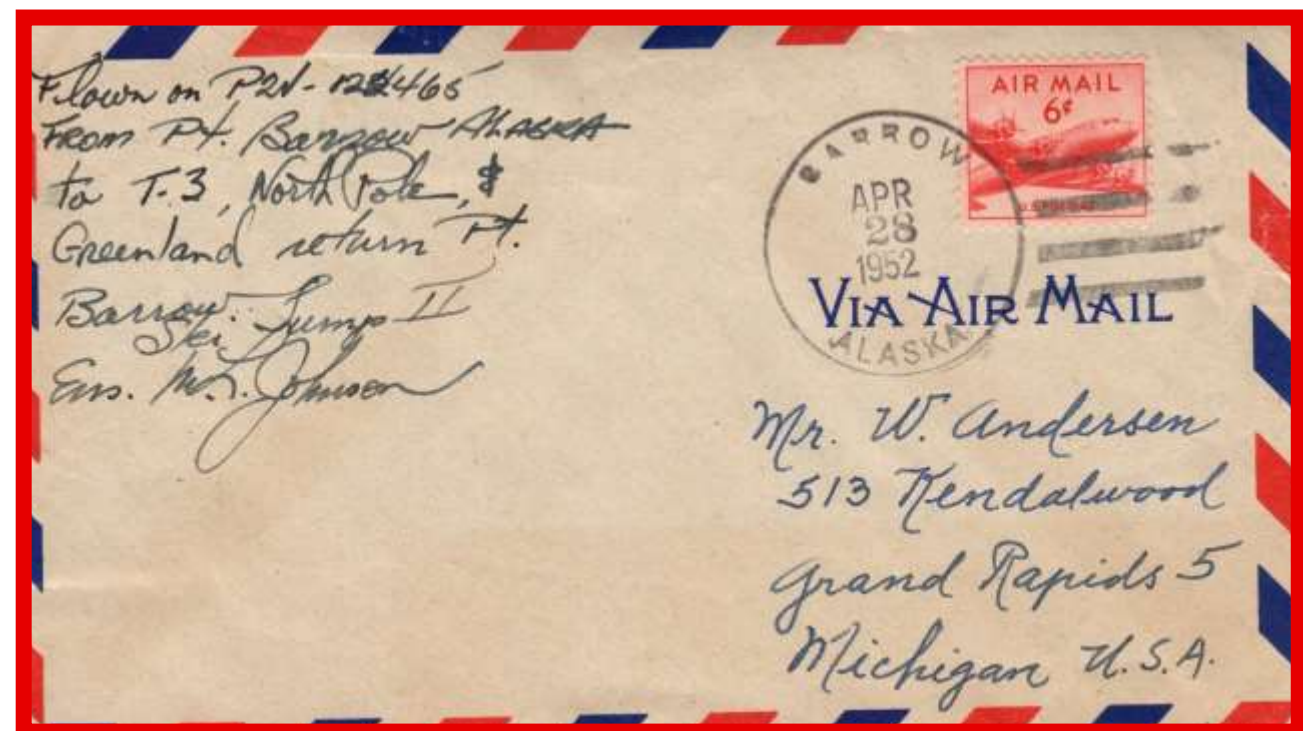 Flown on P2V-122465
From Pt. Barrow Alaska
to T-3, North Pole, &
Greenland return Pt.
Barrow. Ski Jump II
Ens. M.L. Johnson
AIR MAIL
6¢
BARROW
APR
28
1952
ALASKA
VIA AIR MAIL
Mr. W. Andersen
513 Kendalwood
Grand Rapids 5
Michigan U.S.A.